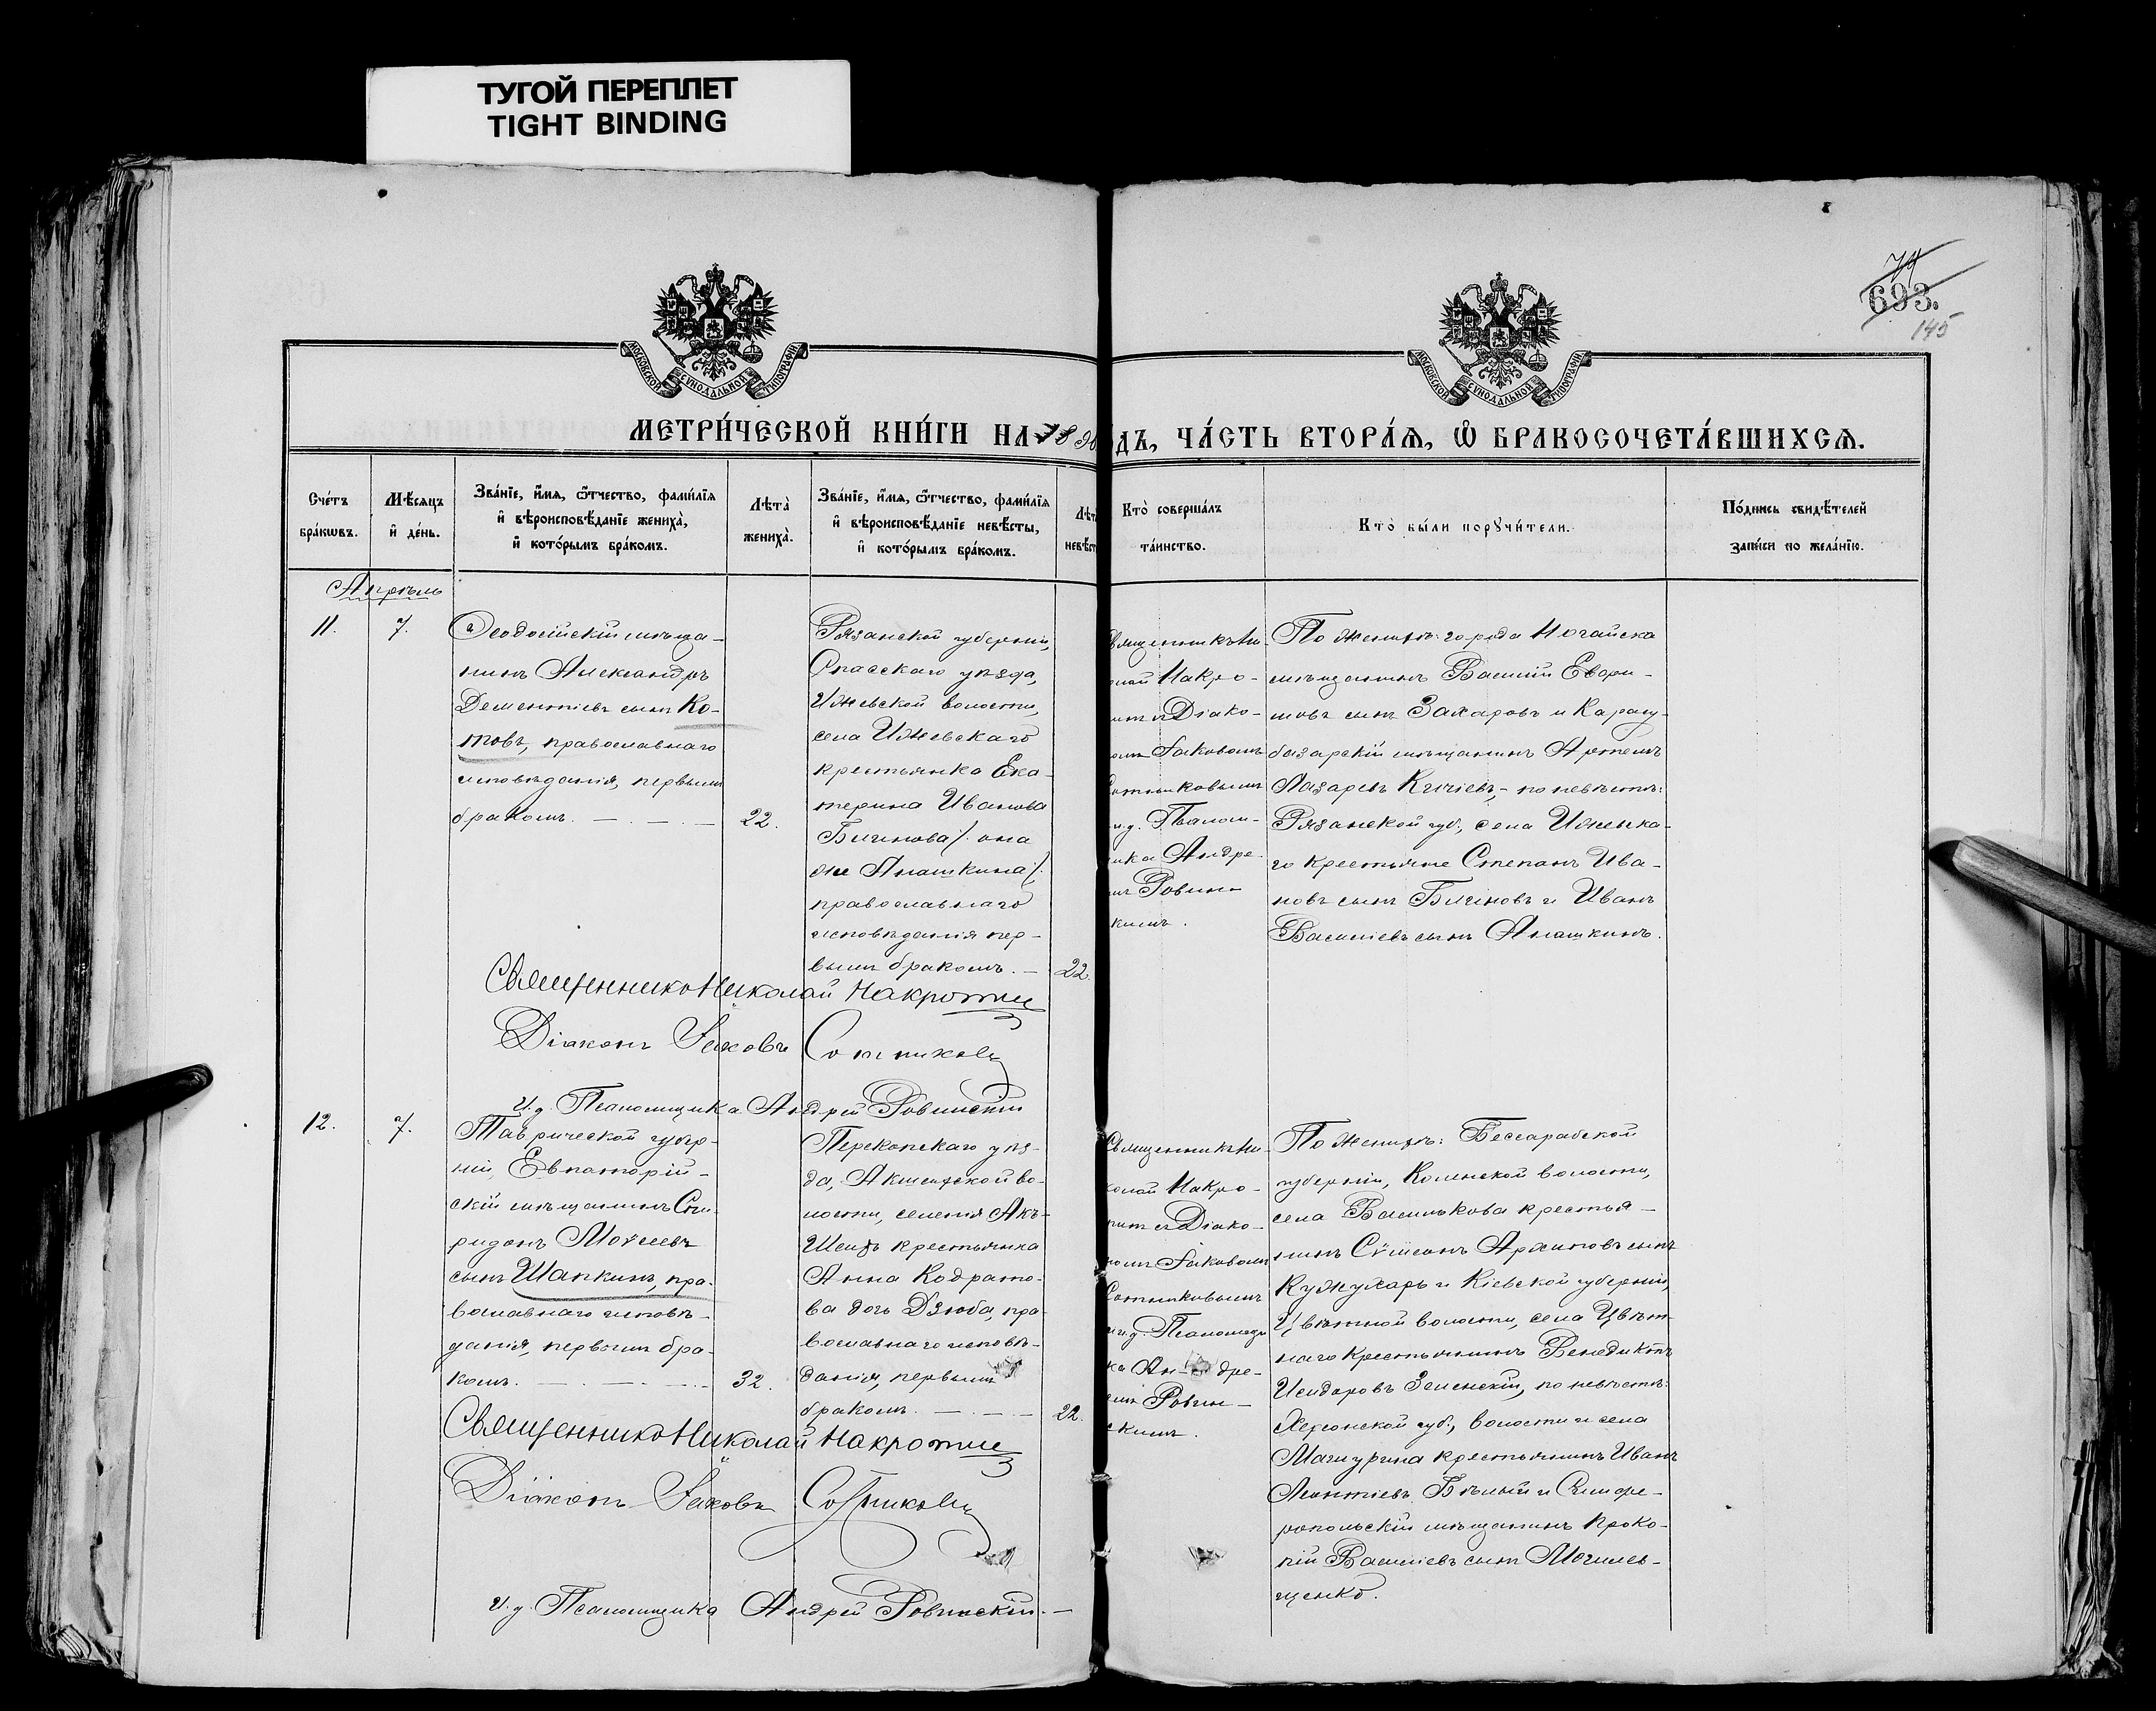 ТУГОЙ ПЕРЕПЛЕТ
TIGHT BINDING
МОСКОВСКОЙ СѴНОДАЛЬНОЙ ТИПОГРАФІИ
МОСКОВСКОЙ СѴНОДАЛЬНОЙ ТИПОГРАФІИ
693.
145
МЕТРИ́ЧЕСКОЙ КНИ́ГИ НА 1890
ДЪ, ЧА́СТЬ ВТОРА́Я, Ѽ БРАКОСОЧЕТА́ВШИХСЯ.
Сче́тъ
бра́кѡвъ.
Мѣ́сяцъ
и҆ де́нь.
Зва́нїе, и҆́мя, ѻ҆́тчество, фами́лїя
и҆ вѣроисповѣ́данїе жениха̀,
и҆ кото́рымъ бра́комъ.
Лѣта̀
жениха̀.
Зва́нїе, и҆́мя, ѻ҆́тчество, фами́лїя
и҆ вѣроисповѣ́данїе невѣ́сты,
и҆ кото́рымъ бра́комъ.
Лѣт
невѣ́ст
Кто̀ соверша́лъ
та́инство.
Кто̀ бы́ли порꙋчи́тели.
По́дпись свидѣ́телей
за́писи по жела́нїю.
Апрѣль
11.
7.
Ѳеодосійскій мѣща-
нинъ Александръ
Дементіевъ сынъ Ко-
товъ, православнаго
исповѣданія, первымъ
бракомъ. — . — . —
22.
Рязанской губерніи,
Спасскаго уѣзда,
Ижевской волости,
села Ижевскаго
крестьянка Ека-
терина Иванова
Бичинова /. она
же Анашкина /.
православнаго
исповѣданія пер-
вымъ бракомъ. —
22.
Священникъ Ни-
колай Макро-
діако-
Іаковомъ
Сотниковымъ
и.д. Псалом-
ика Андре-
Ровин-
кимъ.
По женихѣ: города Ногайска
мѣщанинъ Василій Евфи-
мовъ сынъ Захаровъ и Карасу-
базарскій мѣщанинъ Артемъ
Лазаревъ Кичіевъ, - по невѣстѣ:
Рязанской губ., села Ижевска-
го крестьяне Степанъ Ива-
новъ сынъ Бичиновъ и Иванъ
Василіевъ сынъ Анашкинъ.
Священникъ Николай Макротие
Діаконъ Іаковъ Сотниковъ
И.д. Псаломщика Андрей Ровинскій
12.
7.
Таврической губер-
ніи, Евпаторій-
скій мѣщанинъ Спи-
ридонъ Моѵсеевъ
сынъ Шапкинъ, пра-
вославнаго исповѣ-
данія, первымъ бра-
комъ. — . — . —
32.
Перекопскаго уѣз-
да, Акшеихской во-
лости, селенія Акъ-
Шеихъ крестьянка
Анна Кодрато-
ва дочь Дзюба, пра-
вославнаго исповѣ-
данія, первымъ
бракомъ. — . —
22.
Священникъ Ни-
колай Макро-
діако-
номъ Іаковомъ
Сотниковымъ
и и.д. Псаломщи-
ка Андре-
емъ Ровин-
скимъ.
По женихѣ: Бессарабской
губерніи, Колинской волости,
села Василькова крестья-
нинъ Сѵмеонъ Архиповъ сынъ
Кужухарь и Кіевской губерніи,
Цвѣтной волости, села Цвѣт-
наго крестьянинъ Венедиктъ
Исидоровъ Зеленскій, по невѣстѣ:
Херсонской губ., волости и села
Мачурина крестьянинъ Иванъ
Леонтіевъ Бѣлый и Симфе-
ропольскій мѣщанинъ Проко-
пій Василіевъ сынъ Могилев-
щенко.
Священникъ Николай Макротие
Діаконъ Іаковъ Сотниковъ
И.д. Псаломщика Андрей Ровинскій. —